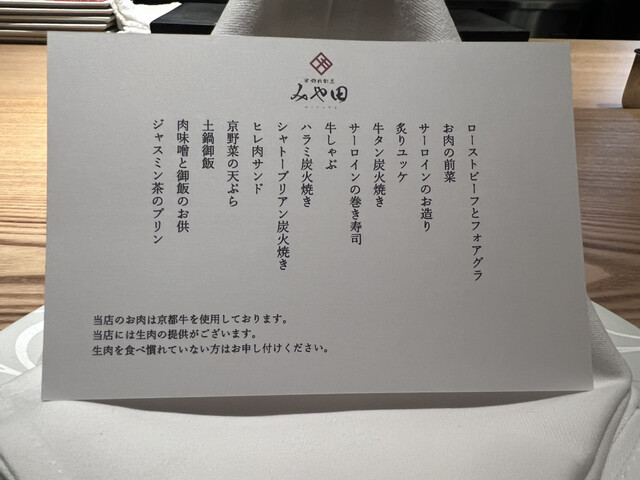 京都肉割烹
みや田
MIYATA
ローストビーフとフォアグラ
お肉の前菜
サーロインのお造り
炙りユッケ
牛タン炭火焼き
サーロインの巻き寿司
牛しゃぶ
ハラミ炭火焼き
シャトーブリアン炭火焼き
ヒレ肉サンド
京野菜の天ぷら
土鍋御飯
肉味噌と御飯のお供
ジャスミン茶のプリン
当店のお肉は京都牛を使用しております。
当店には生肉の提供がございます。
生肉を食べ慣れていない方はお申し付けください。